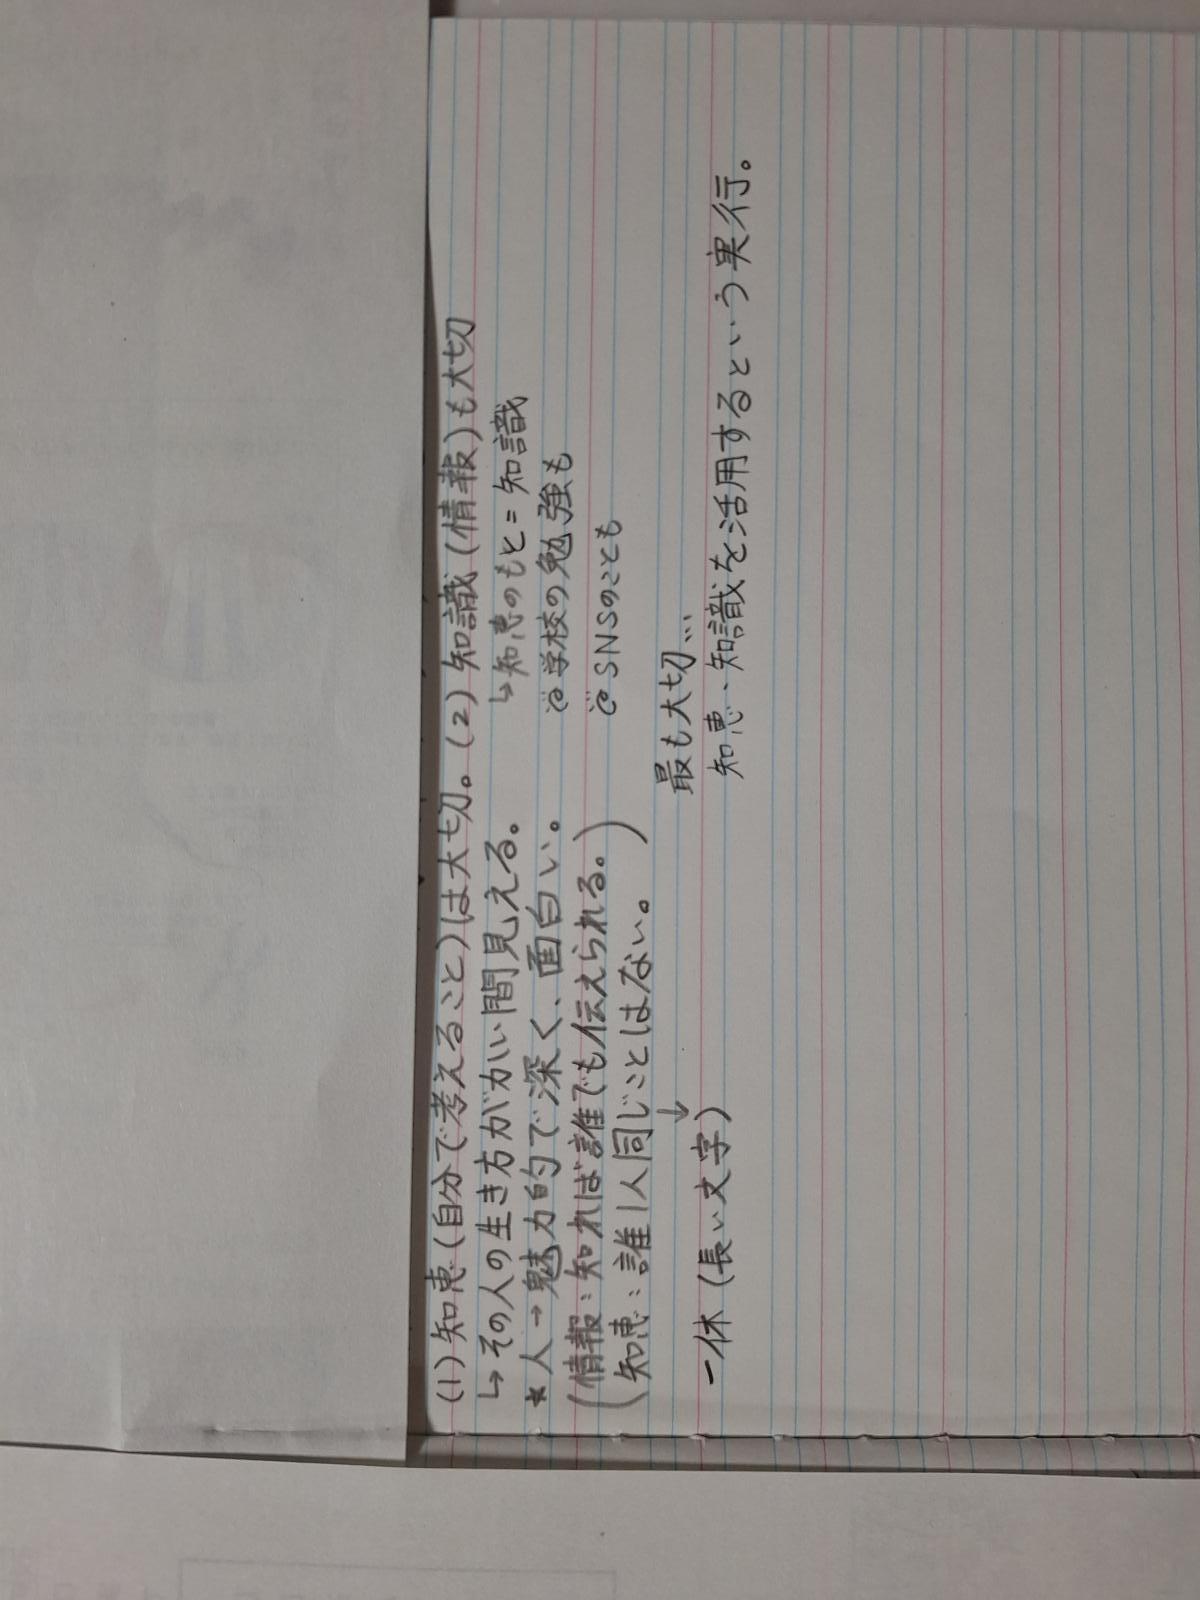 (1)知恵(自分で考えること)は大切。
↳その人の生き方がかい間見える。
*人→魅力的で深く、面白い。
(情報:知れば誰でも伝えられる。)
(知恵:誰1人同じことはない。)
↓
一休(長い文字)
(2)知識(情報)も大切
↳知恵のもと=知識
学校の勉強も
SNSのことも
最も大切…
知恵、知識を活用するという実行。